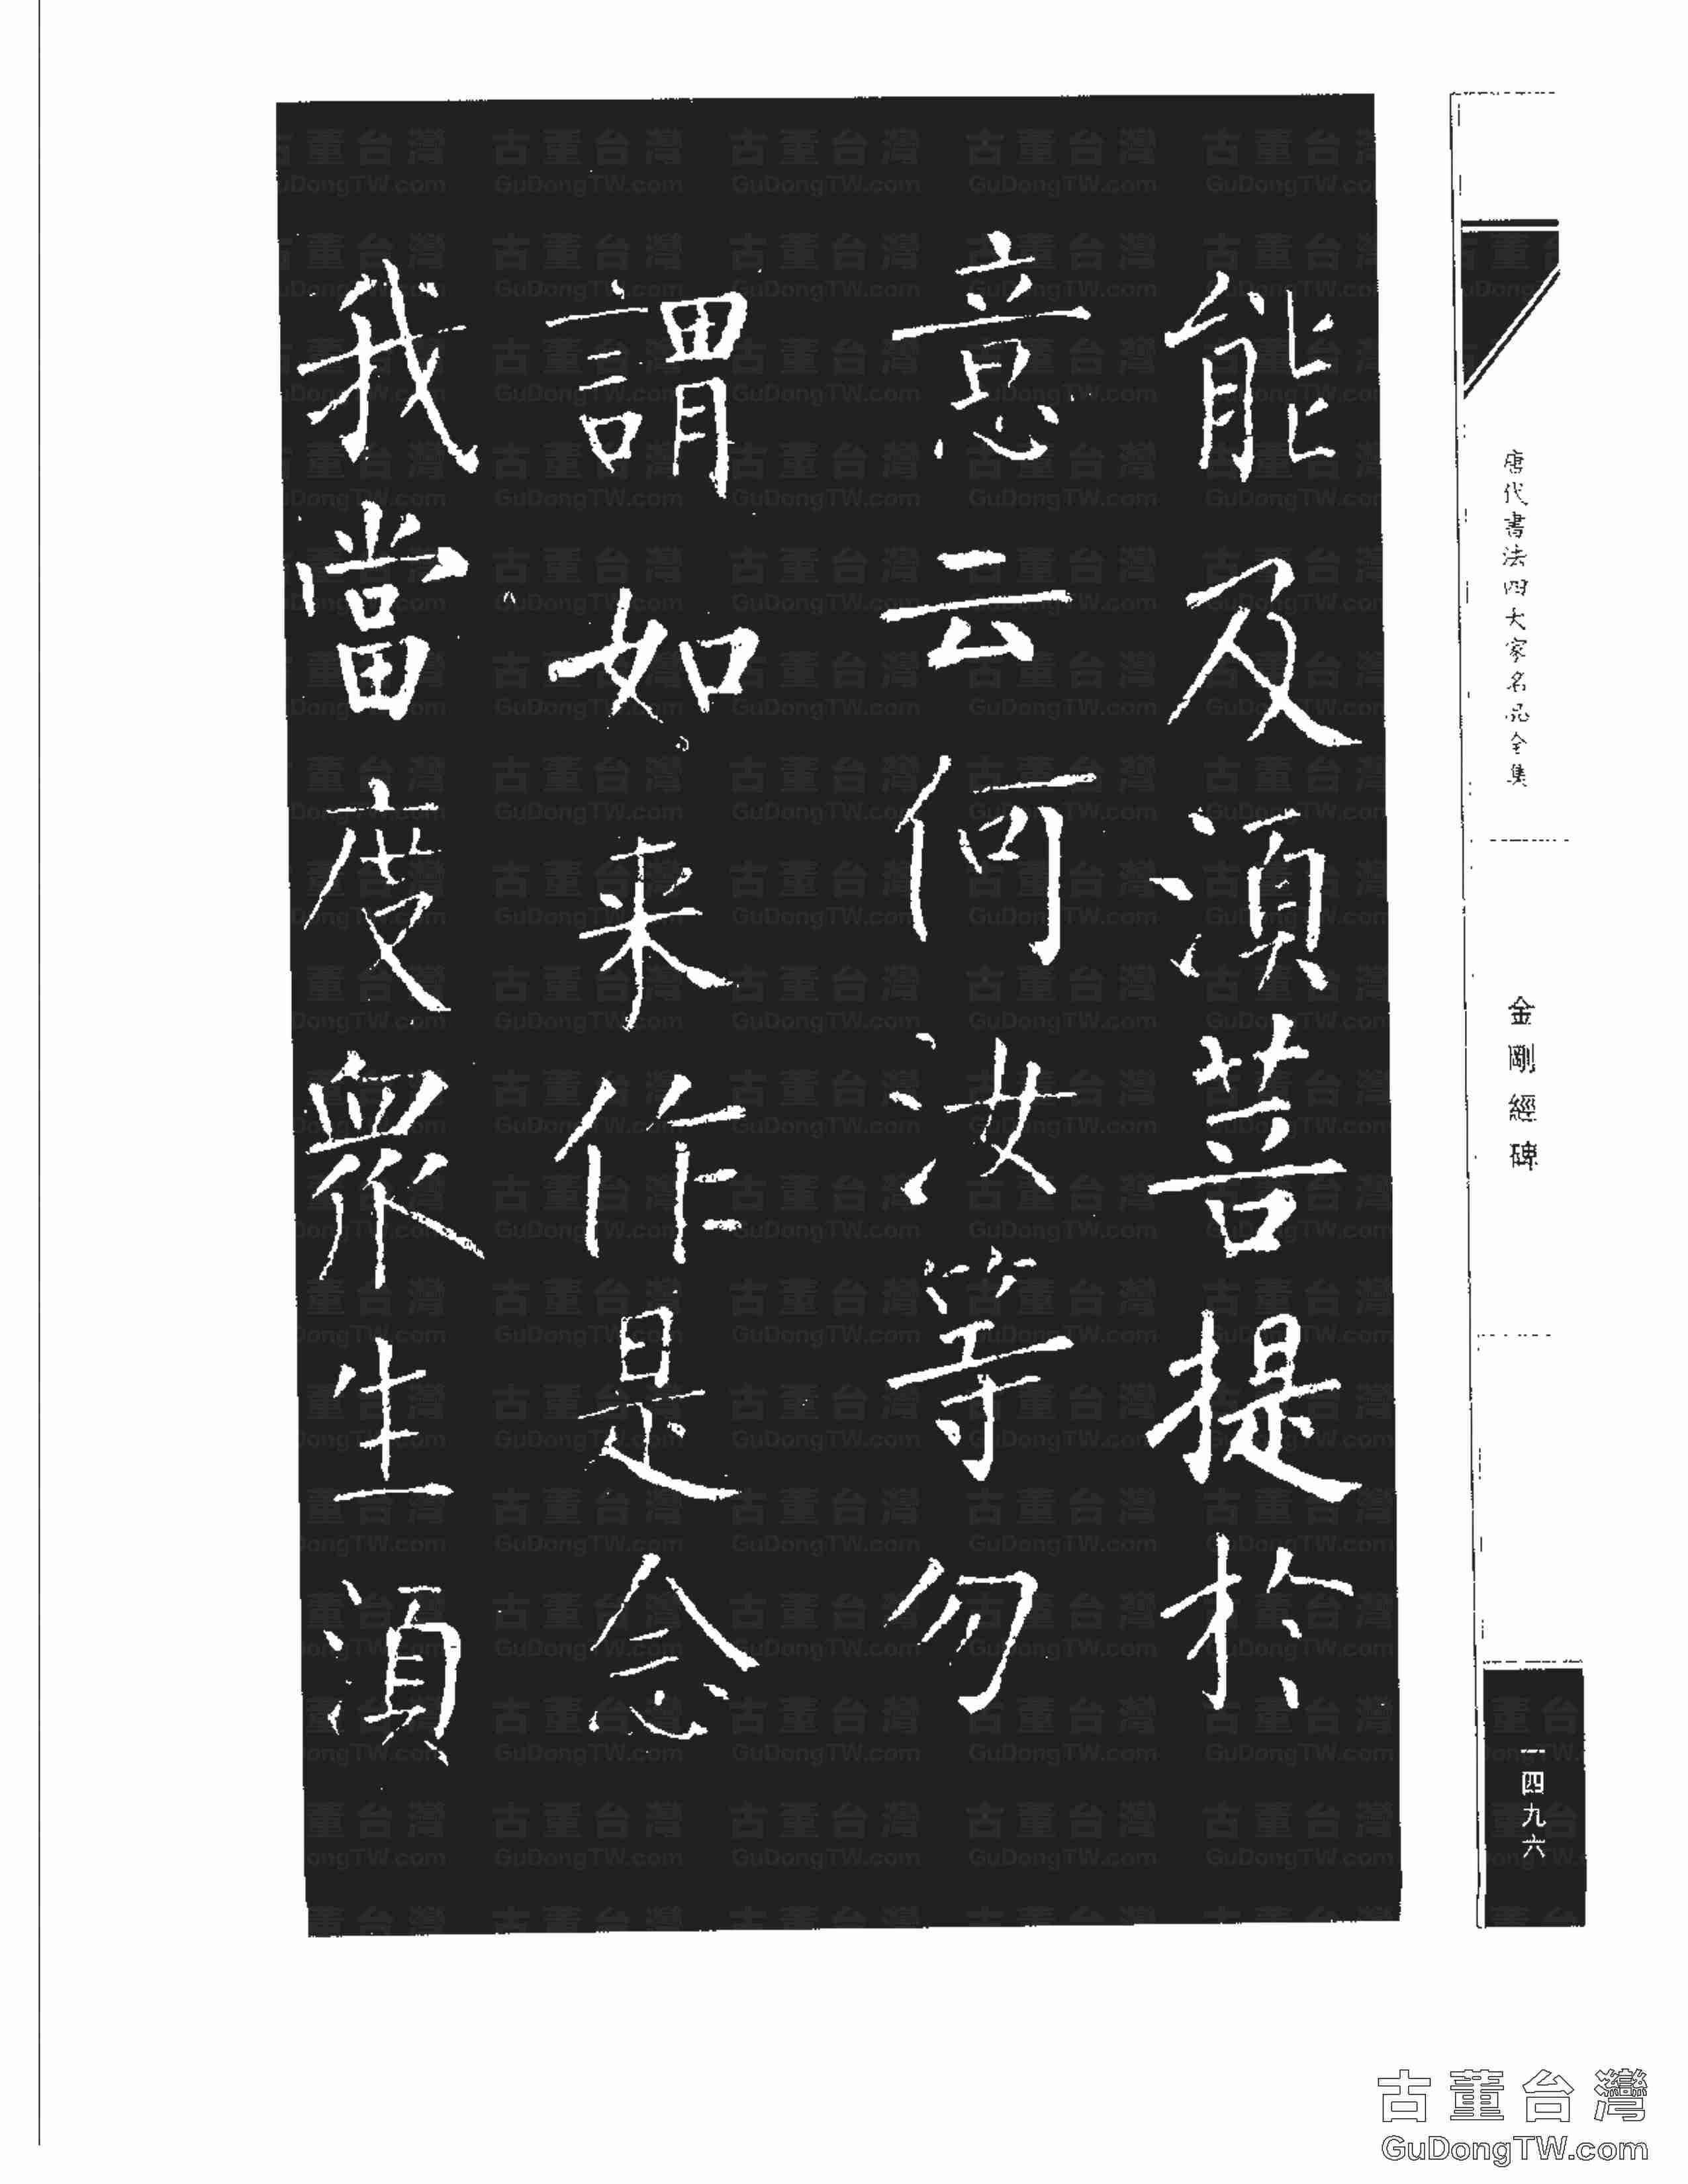 能及湏菩提於
意云何汝等勿
謂如来作是念
我當度衆生湏
唐代書法四大家名品全集
金剛經碑
一四九六
古董台灣
GuDongTW.com